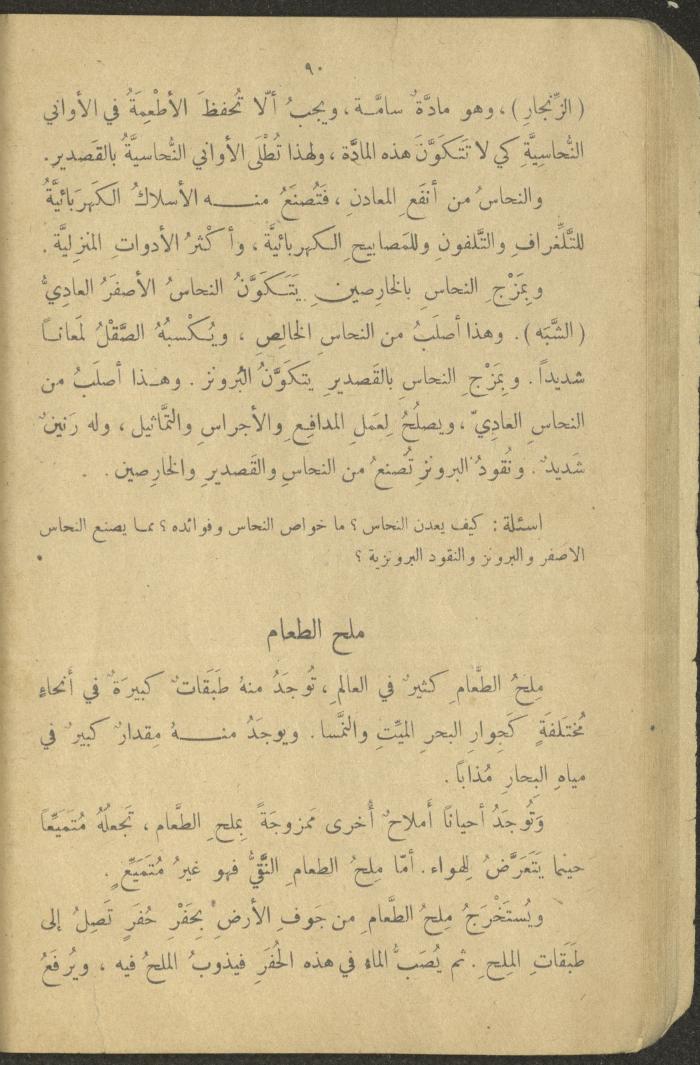 ٩٠
(الزِّنجارِ)، وهو مادَّةٌ سامَّـة، ويجبُ ألّا تُحفظَ الأطْعِمَةُ في الأواني
النُّحاسِيَّةِ كي لا تَتَكَوَّنَ هذه المادَّة، ولهذا تُطْلَى الأواني النُّحاسيَّةُ بالقَصدير.
والنحاسُ من أنفَعِ المعادنِ، فَتُصنَعُ منـــه الأسلاكُ الكَهرَبائيَّةُ
للتَّلِغرافِ والتَّلفونِ وللمَصابيحِ الكهربائيَّة، وأكْثرُ الأدواتِ المنزِليَّة.
وبِمَزْجِ النحاسِ بالخارِصينِ يَتَكَوَّنُ النحاسُ الأصفَرُ العادِيُّ
(الشَّبَه). وهذا أصلَبُ من النحاسِ الخالِصِ، ويُكْسبُهُ الصَّقْلُ لَمعانـاً
شديداً. وبِمَزْجِ النحاسِ بالقَصديرِ يتكَوَّنُ البُرونز. وهـذا أصلَبُ من
النحاسِ العادِيّ، ويصلُحُ لِعَملِ المدافعِ والأجراسِ والتَّماثيل، وله رَنينٌ
شَديدٌ. ونُقودُ البرونزِ تُصنعُ من النحاسِ والقَصديرِ والخارِصين.
اسئلة: كيف يعدن النحاس؟ ما خواص النحاس وفوائده؟ مما يصنع النحاس
الاصفر والبرونز والنقود البرونزية؟
ملح الطعام
مِلحُ الطَّعامِ كثيرٌ في العالمِ، تُوجَدُ منهُ طَبَقاتٌ كبيرَةٌ في أنحاءٍ
مُختَلفَةٍ كَجِوارِ البحرِ الميِّتِ والنمَّسا. ويوجَدُ منـــهُ مِقدارٌ كبيرٌ في
مياهِ البِحارِ مُذاباً.
وَتُوجَدُ أحيانًا أملاحٌ أُخرى مَمزوجَةً بِملحِ الطَّعام، تَجعلُهُ مُتَميِّعًا
حينما يَتَعَرَّضُ لِلهواء. أمّا مِلحُ الطعامِ النَّقيُّ فهو غيرُ مُتَمَيِّعٍ.
ويُستَخْرَجُ مِلحُ الطَّعامِ من جَوفِ الأرضِ بِحَفْرِ حُفَرٍ تَصِلُ إلى
طَبَقاتِ المِلحِ. ثم يُصَبُّ الماءُ في هذه الحُفَرِ فيذوبُ الملحُ فيه، ويُرفَعُ